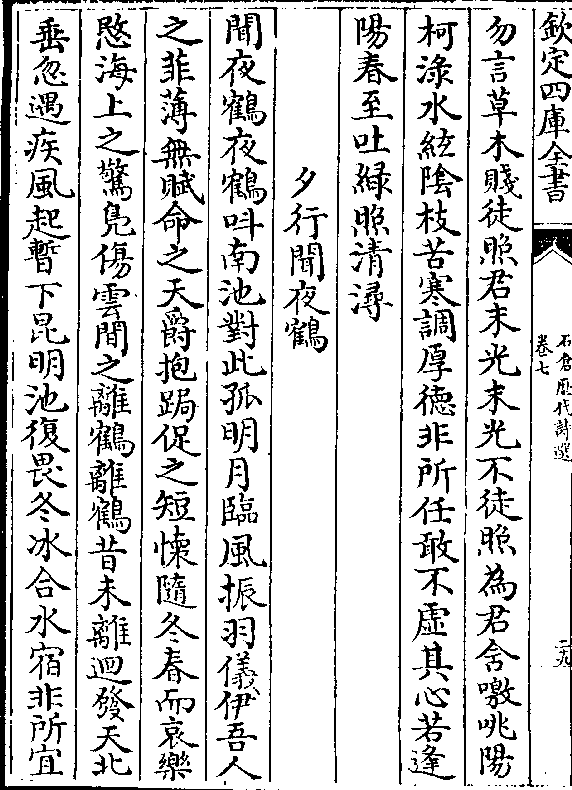 欽定四庫全書
石倉歷代詩選
卷七
二九
勿言草木賤徒照君末光末光不徒照為君含噭咷陽
柯淥水絃陰枝苦寒調厚德非所任敢不虛其心若逢
陽春至吐緑照清潯
夕行聞夜鶴
聞夜鶴夜鶴呌南池對此孤明月臨風振羽儀伊吾人
之菲薄無賦命之天爵抱跼促之短懷隨冬春而哀樂
愍海上之驚鳬傷雲間之離鶴離鶴昔未離迥發天北
垂忽遇疾風起暫下昆明池復畏冬冰合水宿非所宜